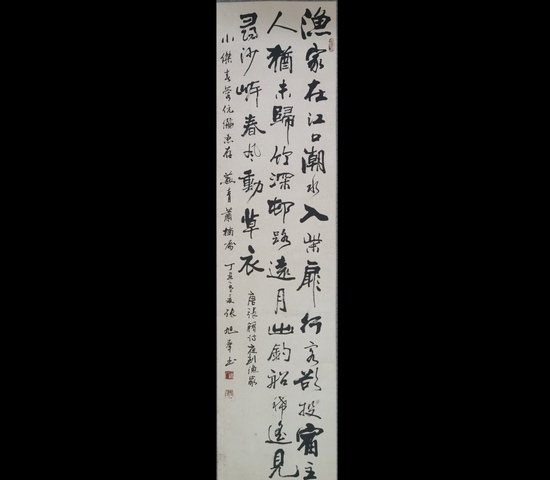 漁家在江口潮水入柴扉行客欲投宿主
人猶未歸竹深邨路遠月出釣船稀遙見
尋沙岸春風動草衣
唐張籍詩夜到漁家
小傑
丁亥 張旭